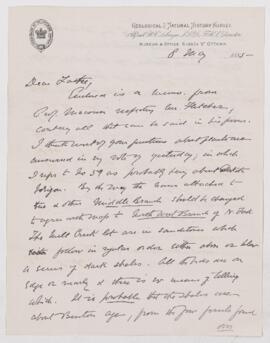 GEOLOGICAL & NATURAL HISTORY SURVEY.
Alfred R.C. Selwyn, LL.D., F.R.S., Director
MUSEUM & OFFICE, SUSSEX ST. OTTAWA
8 May 1885
Dear Father,
Enclosed is a memo. from
Prof. Macoun respecting
contains all that can be said in his favor.
I think most of your questions about plants are
answered in my reply yesterday, in which
I refer to No 39 as probably being about
horizon. By the way the name attached to
this & other Middle Branch should be changed
to agree with map to North West Branch of N. Fork
The Mill Creek lot are in sandstones which
follow in regular order either above or below
a series of dark shales. All the beds are on
edge or nearly & there is no means of telling
which. It is probable that the shales are
about Benton age, from the few fossils found